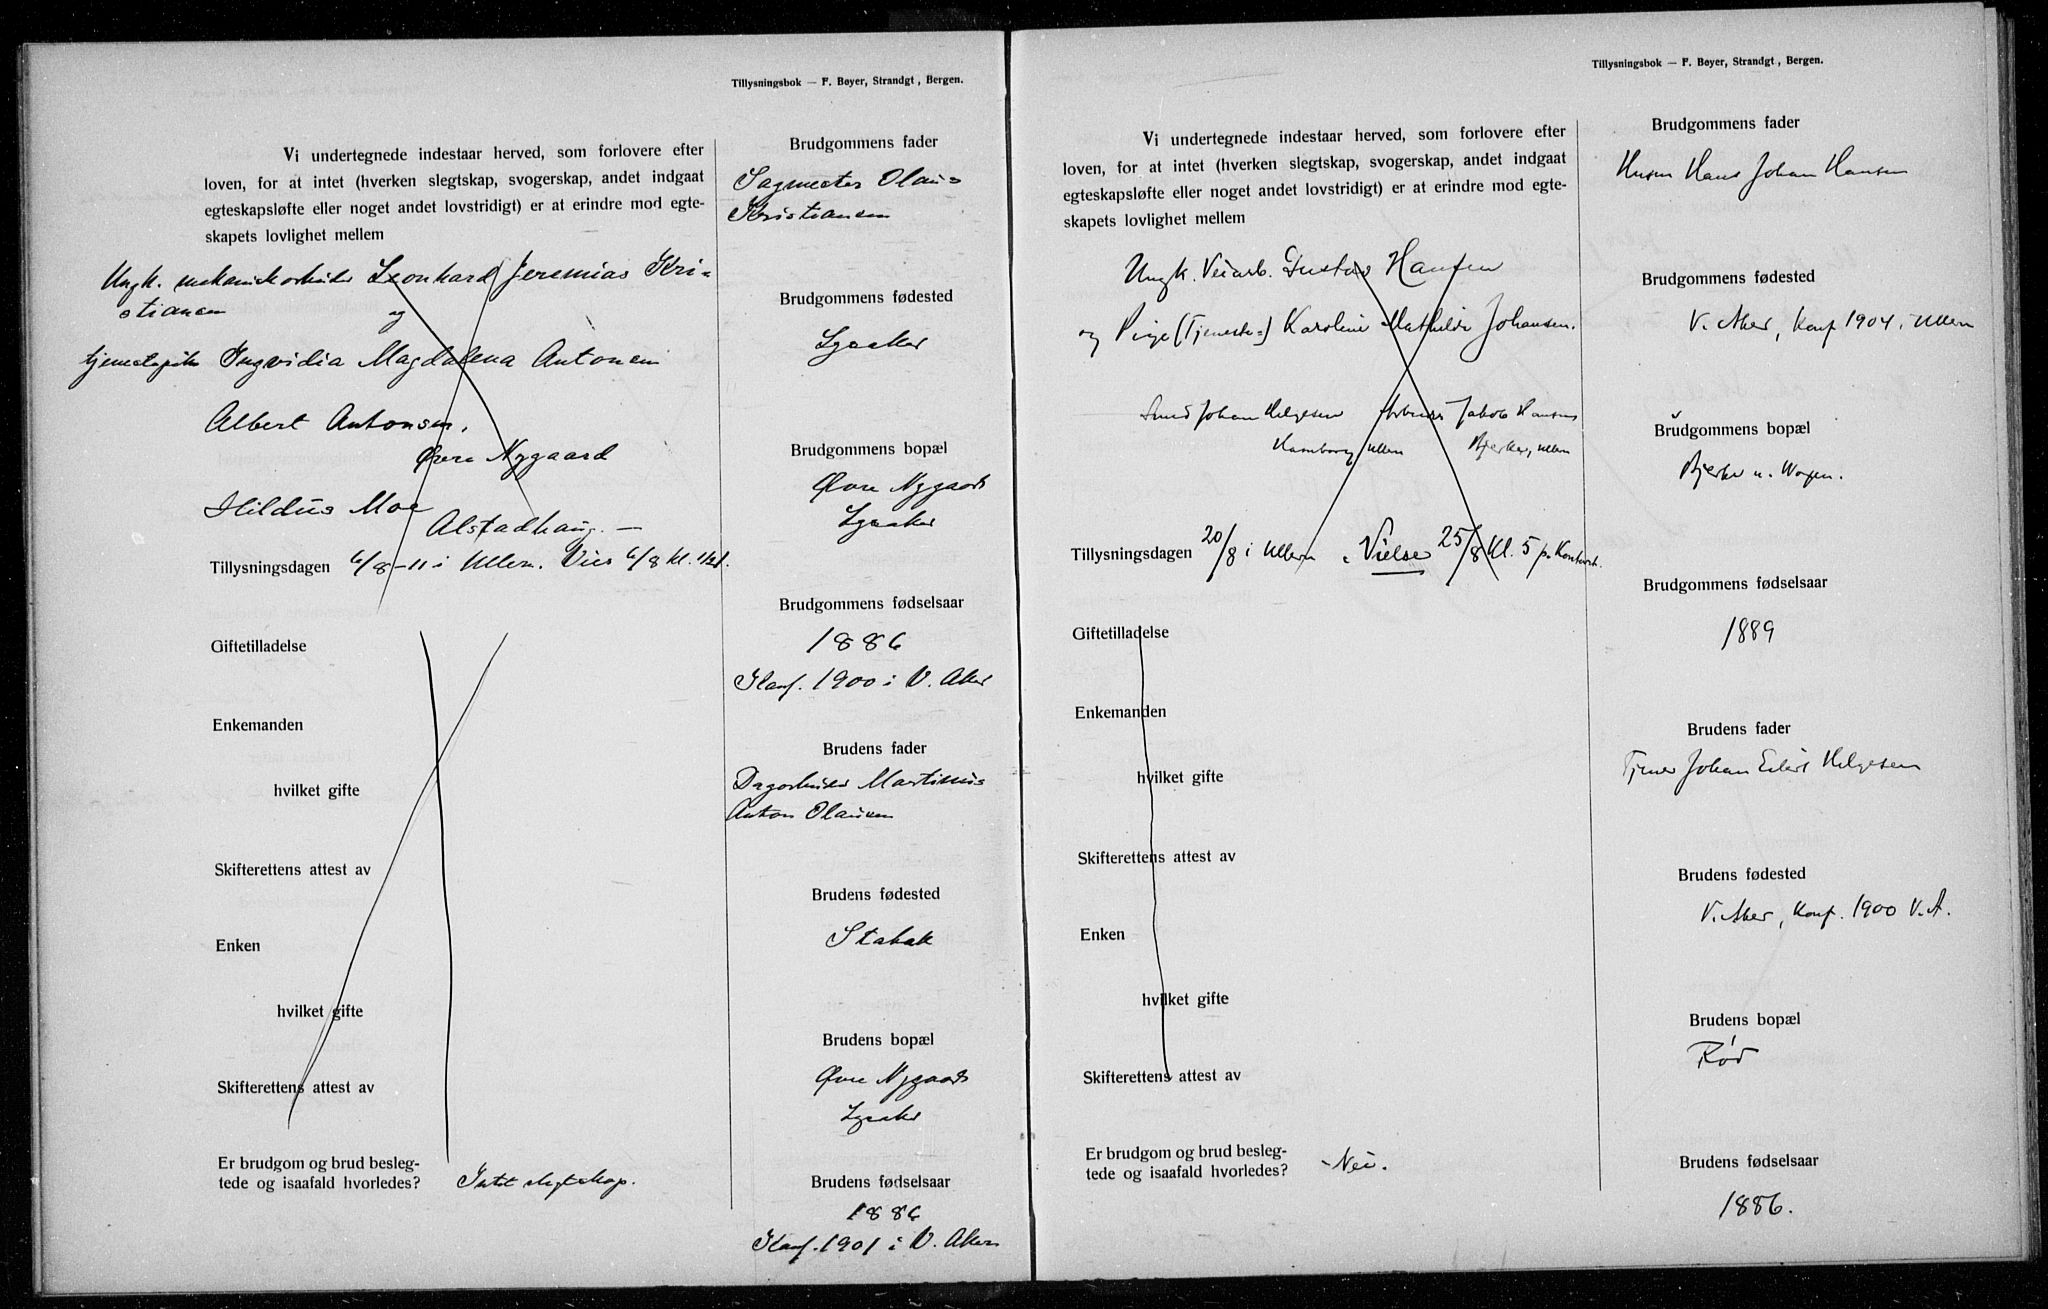 Tillysningsbok — F. Bøyer, Strandgt., Bergen.
Vi undertegnede indestaar herved, som forlovere efter
loven, for at intet (hverken slegtskap, svogerskap, andet indgaat
egteskapsløfte eller noget andet lovstridigt) er at erindre mod egte-
skapets lovlighet mellem
Ungk. mekanikarbeider Leonhard Jeremias Kri-
stiansen og
tjenestepike Ingvidia Magdalena Antonsen
Albert Antonsen,
Øvre Nygaard
Hildus Moe
Alstadhaug. —
Tillysningsdagen 6/8-11 i Ullern. Vies 6/8 kl.
Giftetilladelse
Enkemanden
hvilket gifte
Skifterettens attest av
Enken
hvilket gifte
Skifterettens attest av
Er brudgom og brud besleg-
tede og isaafald hvorledes? Intet slegtskap.
Brudgommens fader
Sagmester Olaus
Kristiansen
Brudgommens fødested
Lysaker
Brudgommens bopæl
Øvre Nygaard
Lysaker
Brudgommens fødselsaar
1886
Konf. 1900 i V. Aker
Brudens fader
Dagarbeider Martinius
Anton Olausen
Brudens fødested
Stabæk
Brudens bopæl
Øvre Nygaard
Lysaker
Brudens fødselsaar
1886
Konf. 1901 i V. Aker
Tillysningsbok — F. Bøyer, Strandgt., Bergen.
Vi undertegnede indestaar herved, som forlovere efter
loven, for at intet (hverken slegtskap, svogerskap, andet indgaat
egteskapsløfte eller noget andet lovstridigt) er at erindre mod egte-
skapets lovlighet mellem
Ungk. Veiarb. Gustav Hansen
og Pige (Tjeneste-) Karoline Mathilde Johansen.
Smed Johan Helgesen Arbeider Jakob Hansen
Hamborg, Ullern Bjerke, Ullern
Tillysningsdagen 20/8 i Ullern. Vielse 25/8 Kl. 5 p. Kontoret.
Giftetilladelse
Enkemanden
hvilket gifte
Skifterettens attest av
Enken
hvilket gifte
Skifterettens attest av
Er brudgom og brud besleg-
tede og isaafald hvorledes? Nei.
Brudgommens fader
Husm Hans Johan Hansen
Brudgommens fødested
V. Aker, Konf 1904 i Ullern
Brudgommens bopæl
Bjerke
Brudgommens fødselsaar
1889
Brudens fader
Tjener Johan Eilert Helgesen
Brudens fødested
V. Aker, Konf. 1900 V. A.
Brudens bopæl
Rød
Brudens fødselsaar
1886.